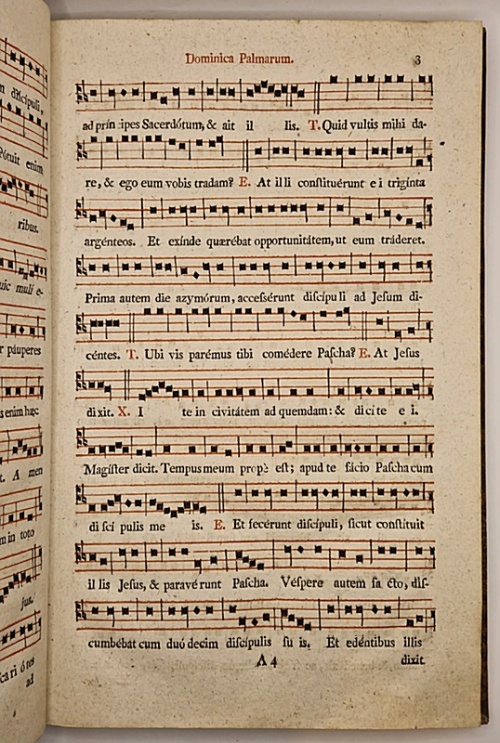 Dominica Palmarum.
3
ad príncipes Sacerdótum, & ait il lis. T. Quid vultis mihi da-
re, & ego eum vobis tradam? E. At illi conſtituérunt e i triginta
argénteos. Et exínde quærébat opportunitátem, ut eum tráderet.
Prima autem die azymórum, acceſsérunt diſcípuli ad Jesum di-
céntes. T. Ubi vis parémus tibi comédere Paſcha? E. At Jeſus
dixit. X. I te in civitátem ad quemdam: & dicite e i.
Magíſter dicit. Tempus meum propè eſt; apud te fácio Paſcha cum
di ſcí pulis me is. E. Et fecérunt diſcípuli, ſicut conſtítuit
il lis Jeſus, & paravérunt Paſcha. Véſpere autem fa cto, diſ-
cumbébat cum duódecim diſcípulis ſu is. Et edéntibus illis
A 4
dixit
diſcípuli,
Pótuit enim
ribus.
muli e-
páuperes
enim hæc
A men
in toto
jus.
ad